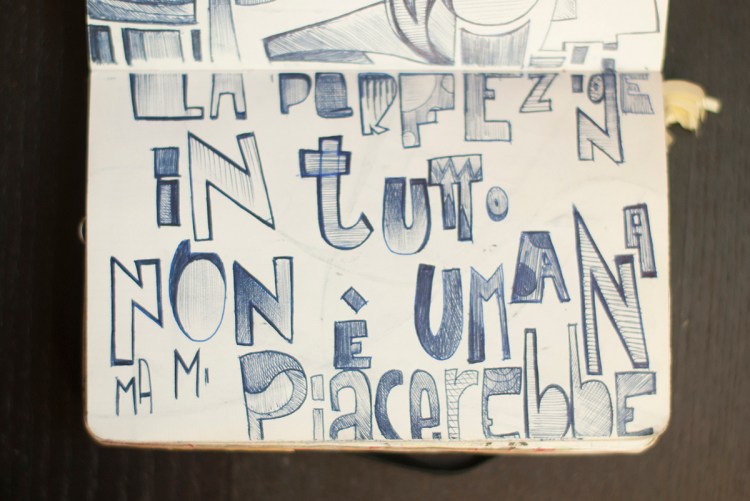 LA PERFEZIONE
IN tUTTO
NON È UMANA
MA MI PiacerEbbE